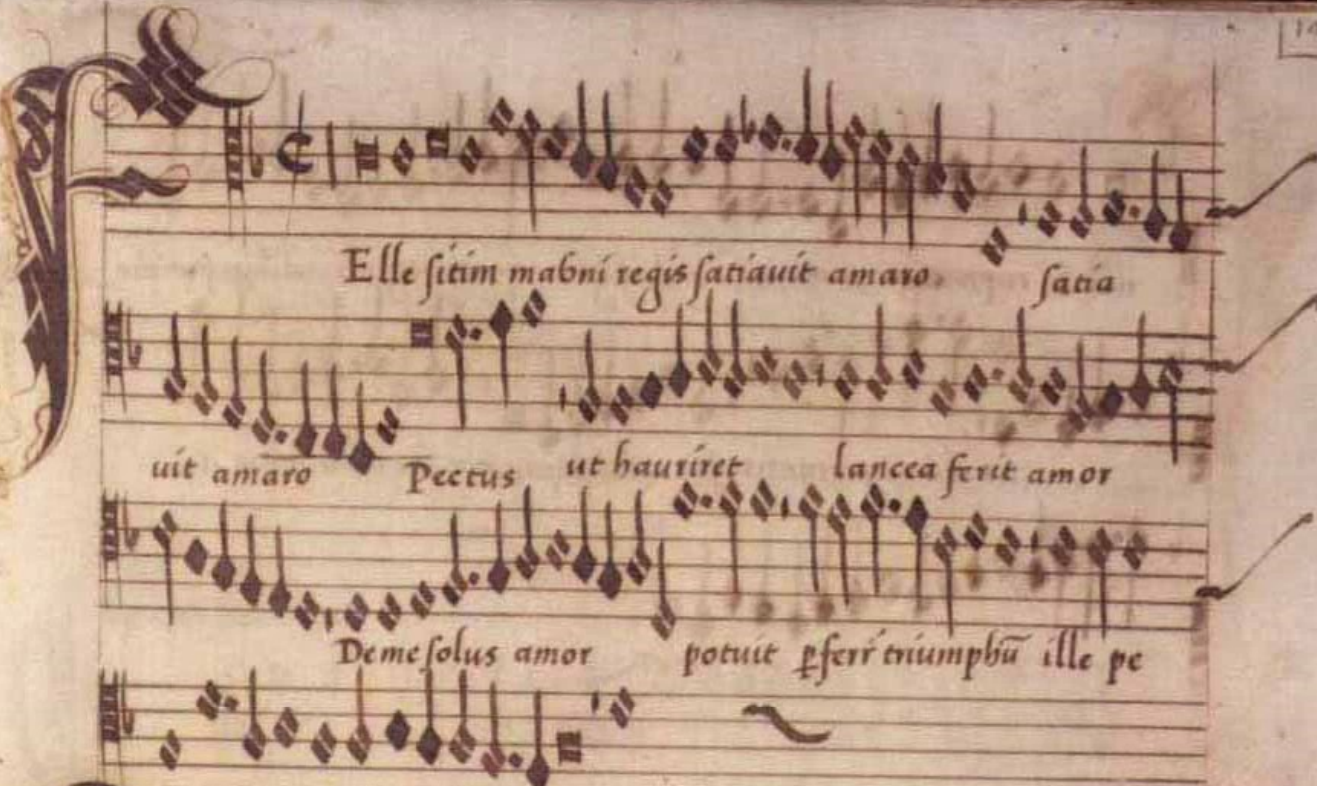 Felle ſitim mabni regis ſatiavit amaro. ſatia
vit amaro Pectus ut hauriret lancea ferit amor
De me ſolus amor potuit ꝑferr̃ triumphū ille pe